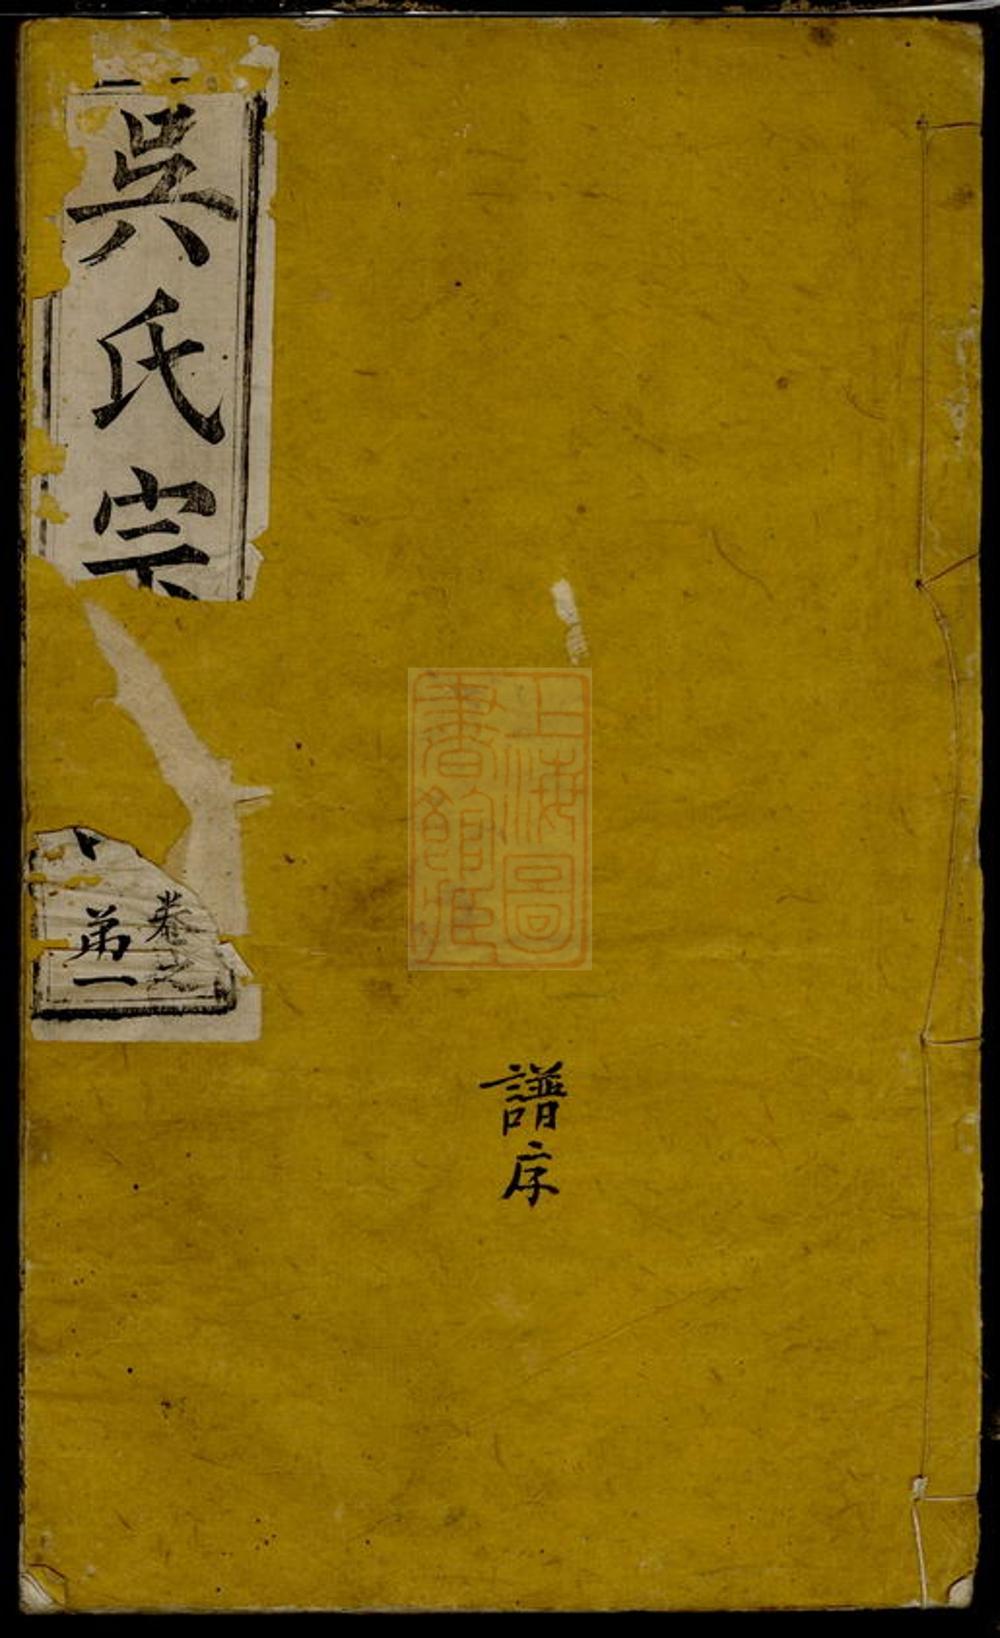 吳氏宗
卷之
弟一
譜序
上海圖
書館藏